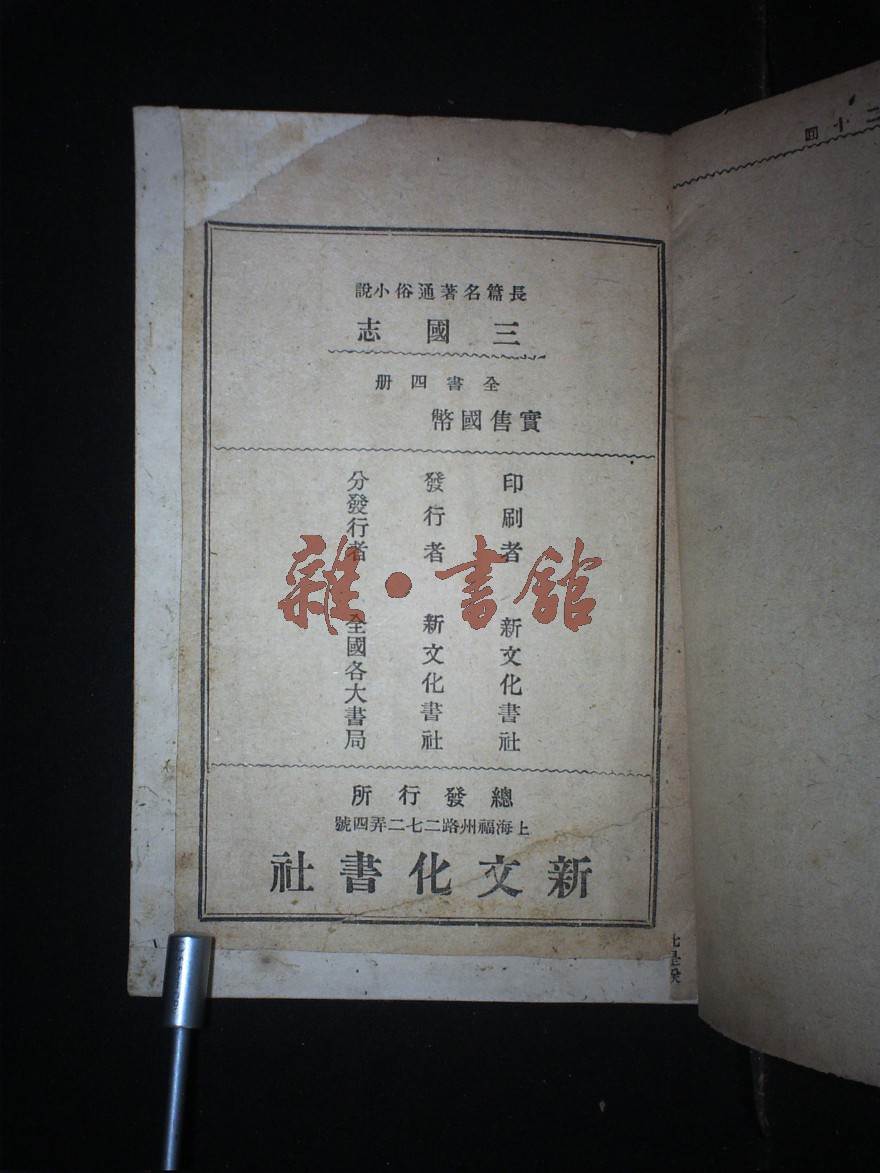 長篇名著通俗小說
三國志
全書四册
實售國幣
印刷者 新文化書社
發行者 新文化書社
分發行者 全國各大書局
總發行所
上海福州路二七二弄四號
新文化書社
雜·書舘
二十回